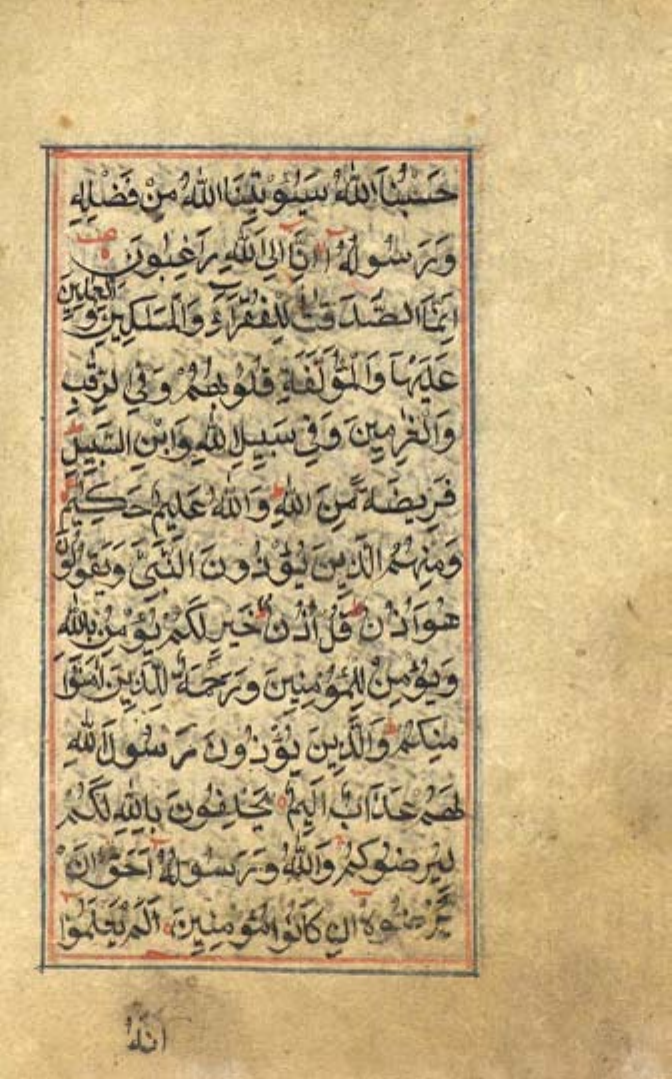 حَسْبُنَا اللّٰهُ سَيُؤْتِيْنَا اللّٰهُ مِنْ فَضْلِهٖ
وَرَسُوْلُهٗ اِنَّا اِلَى اللّٰهِ رَاغِبُوْنَ
اِنَّمَا الصَّدَقٰتُ لِلْفُقَرَآءِ وَالْمَسٰكِيْنِ وَ الْعٰمِلِيْنَ
عَلَيْهَا وَالْمُؤَلَّفَةِ قُلُوْبُهُمْ وَفِي لرِّقَابِ
وَالْغٰرِمِيْنَ وَفِيْ سَبِيْلِ اللّٰهِ وَابْنِ السَّبِيْلِ
فَرِيْضَةً مِّنَ اللّٰهِ وَاللّٰهُ عَلِيْمٌ حَكِيْمٌ
وَمِنْهُمُ الَّذِيْنَ يُؤْذُوْنَ النَّبِيَّ وَيَقُوْلُوْنَ
هُوَ اُذُنٌ قُلْ اُذُنُ خَيْرٍ لَّكُمْ يُؤْمِنُ بِاللّٰهِ
وَيُؤْمِنُ لِلْمُؤْمِنِيْنَ وَرَحْمَةٌ لِّلَّذِيْنَ اٰمَنُوْا
مِنْكُمْ وَالَّذِيْنَ يُؤْذُوْنَ رَسُوْلَ اللّٰهِ
لَهُمْ عَذَابٌ اَلِيْمٌ يَحْلِفُوْنَ بِاللّٰهِ لَكُمْ
لِيُرْضُوْكُمْ وَاللّٰهُ وَرَسُوْلُهٗ اَحَقُّ اَنْ
يُّرْضُوْهُ اِنْ كَانُوْا مُؤْمِنِيْنَ اَلَمْ يَعْلَمُوْا
اَنَّهٗ